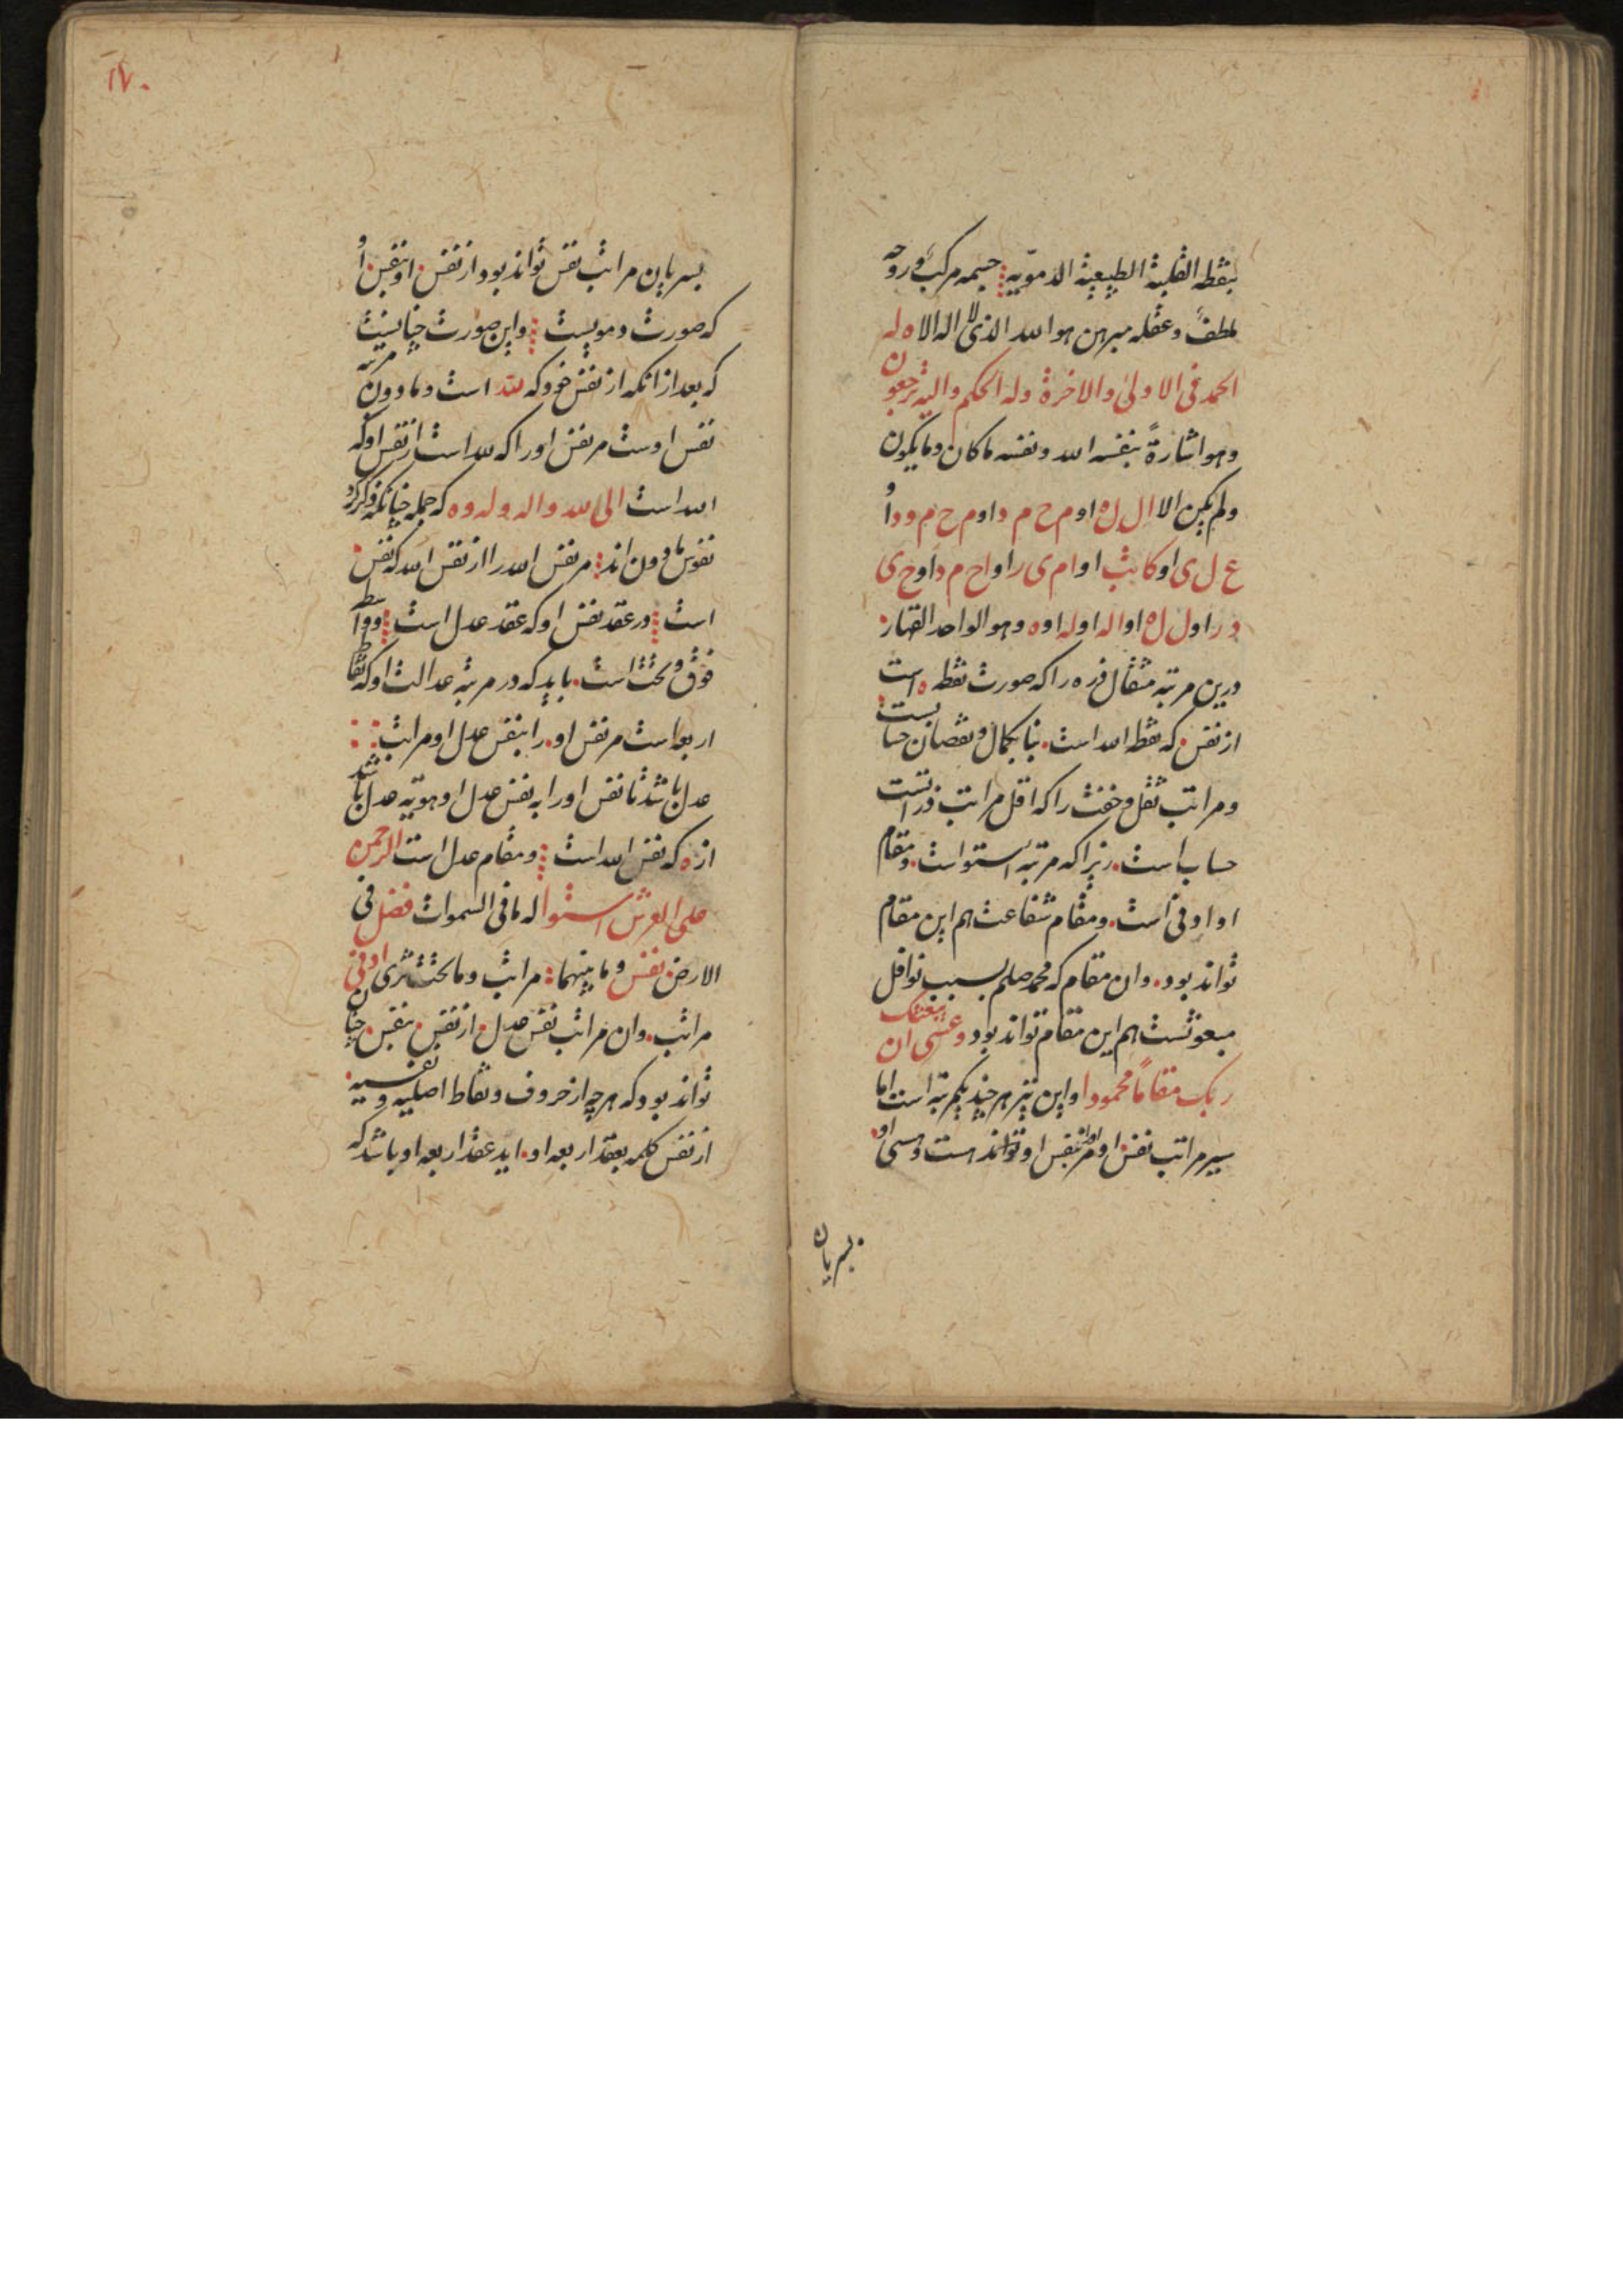 بنقطه القلبیة الطبیعیة الدمویه جسمه مرکب و روحه
لطف و عقله مبرهن هو الله الذی لا اله الا ه له
الحمد فی الاولی والاخرة وله الحکم والیه ترجعون
وهو اشارة بنفسه الله ونفسه ماکان ومایکون
ولم یکن الا ال ل ه او م ح م د او م ح م و د او
ع ل ی او کایث او ام ی ر او اح م د او خ ی
د ر او ل ل ه او اله او له او ه وهو الواحد القهار
درین مرتبه مثقال ذره را که صورت نقطه ه است
از نفس . که نقطه الله است . بنا بکمال و نقصان حسابست
ومراتب ثقل و خفت را که اقل مراتب ذراتست
حساب است . زیرا که مرتبه استواست . ومقام
او ادنی است . ومقام شفاعت هم این مقام
تواند بود . وان مقام که محمد صلم بسبب نوافل
مبعوثست هم این مقام تواند بود وعسی ان یبعثک
ربک مقاماً محمودا واین نیز هر چند یکمرتبه است اما
سیر مراتب نفس او بنفس او تواند هست ومسمی او
بسریان
۱۷۰
بسریان مراتب نفس تواند بود از نفس . او بنفس . او
که صورت دمویست واین صورت چنانیست
که بعد از انکه از نفس خود که لله است ومادون مرتبه
نفس اوست مر نفس او را که لله است از نفس او که
الله است الی لله واله وله وه که جمله چنانکه ذکر کرد
نفوس مادون اند مر نفس الله را از نفس الله که نفس .
است در عقد نفس او که عقد عدل است و واسطه
فوق و تحت است . باید که در مرتبه عدالت او که نقاط
اربعه است مر نفس او . را بنفس عدل او مراتب
عدل باشد تا نفس او را به نفس عدل او هویه عدل باشد
از ه که نفس الله است ومقام عدل است الرحمن
علی العرش استوا له مافی السموات فضل فی
الارض نفس وما بینهما مراتب وما تحت ثری ادنی
مراتب . وان مراتب نفس عدل . از نفس . بنفس . چنان
تواند بود که هر چه از حروف ونقاط اصلیه و نفسیه .
از نفس کلمه بعقد اربعه او . اید عقد اربعه او باشد که